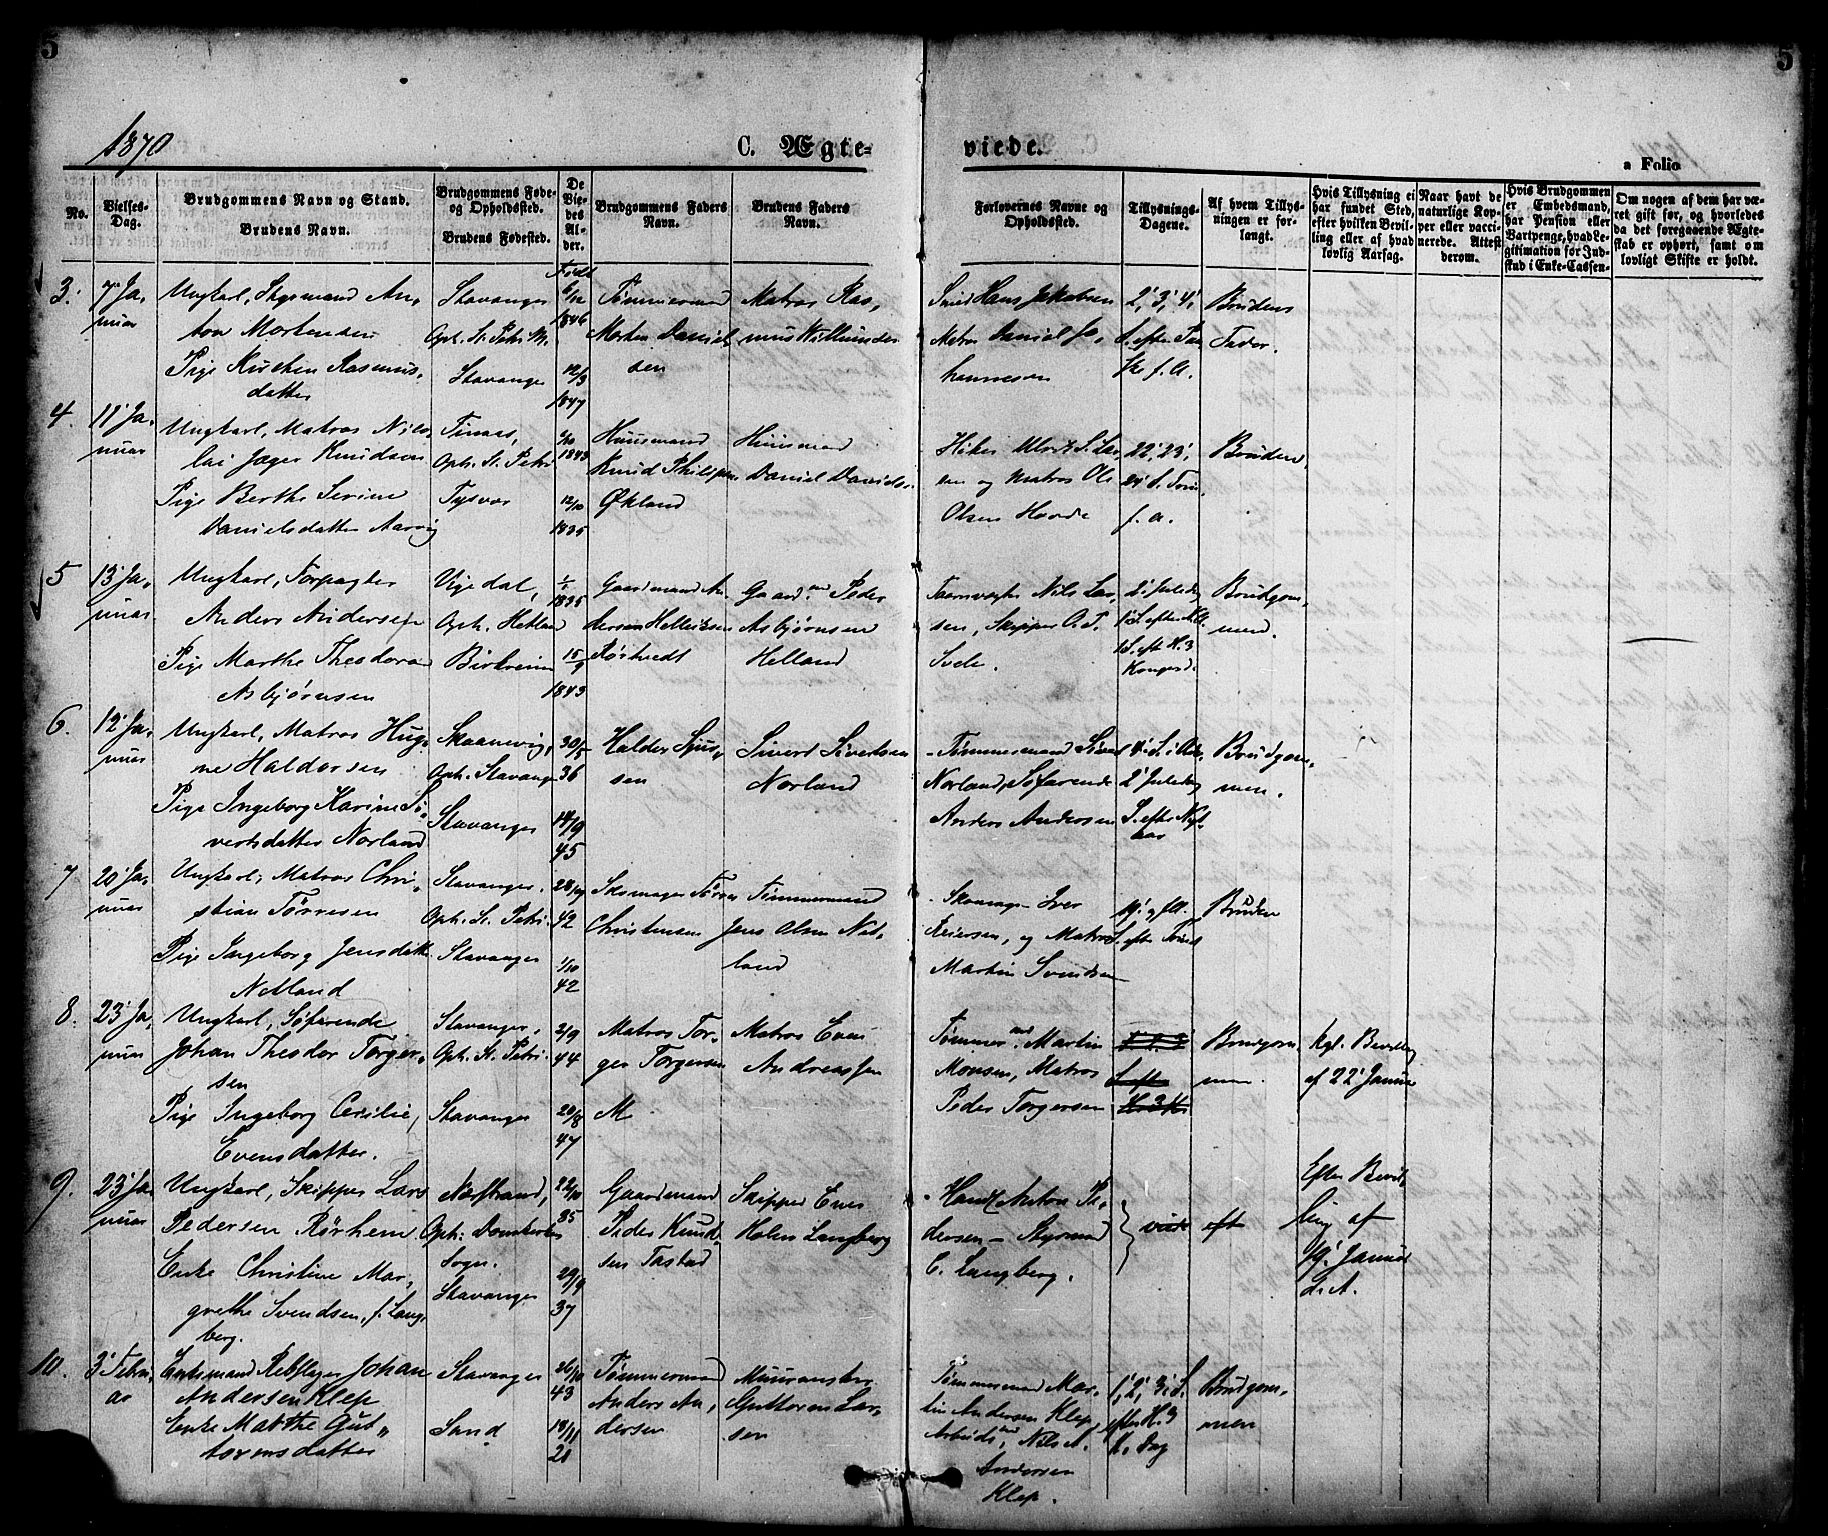 5
5
1870
C. Ægte-
viede.
a Folio
No.
Vielses-
Dag.
Brudgommens Navn og Stand.
Brudens Navn.
Brudgommens Føde-
og Opholdssted.
Brudens Fødested.
De
Vie-
des
Al-
der.
Brudgommens Faders
Navn.
Brudens Faders
Navn.
Forlovernes Navne og
Opholdssted.
Tillysnings-
Dagene.
Af hvem Tillys-
ningen er for-
langt.
Hvis Tillysning ei
har fundet Sted,
efter hvilken Bevil-
ling eller af hvad
lovlig Aarsag.
Naar havt de
naturlige Kop-
per eller vacci-
nerede. Attest
derom.
Hvis Brudgommen
er Embedsmand,
har Pension eller
Vartpenge, hvad Le-
gitimation for Ind-
skud i Enke-Cassen.
Om nogen af dem har væ-
ret gift før, og hvorledes
da det foregaaende Ægte-
skab er ophørt, samt om
lovligt Skifte er holdt.
3.
7' Ja,
nuar
Ungkarl, An,
ton Mortensen
Pige Kirsten Rasmus,
datter
Stavanger
Oph. St. Petri M.
Stavanger
Født
6/12
1846
12/3
1847
Tømmermand
Morten Daniel
sen
Matros Ras,
mus Willumsen
Smed Hans Jakobsen
Matros Daniel Jo,
hannesen
2', 3', 4',
S. efter
f. A.
Brudens
Fader.
4.
11' Ja,
nuar
Ungkarl, Matros Nico,
lai Jæger Knudsen
Pige Berthe Serine
Danielsdatter Aarvig
Oph. St. Petri
Tysvær
1843
12/10
1835
Huusmand
Knud Philipsen
Økland
Huusmand
Daniel Davids,
sen og Matros Ole
Olsen Hovde
22', 23',
24' S. Trin,
f. a.
Bruden.
5
13' Ja,
nuar
Ungkarl, Forpagter
Anders Andersen
Pige Marthe Theodora
Asbjørnsen
Vigedal,
Oph. Hetland
Birkreim
1835
15/9
1843
Gaardmand An
dersen Helliksen
Røstvedt
Gaardm. Peder
Asbjørnsen
Helland
Taarnvægter Nils Lar,
sen, Skipper O. T.
Svele.
2' Juledag
1' S. efter
1 S. efter H. 3
Kongersd.
Brudgom,
men.
6.
12' Ja,
nuar
Ungkarl, Matros Hug,
ne Haldorsen
Pige Ingeborg Karine Si,
vertsdatter Norland
Skaanevig,
Oph. Stavanger
Stavanger
30/5
36
14/9
45
Haldor Sjur,
sen
Sivert Sivertsen
Norland
Tømmermand Sivert
Norland, Søfarende
Anders Andersen
4' S. i Adv.,
2' Juledag
S. efter Nyt,
aar
Brudgom,
men.
7
20' Ja,
nuar
Ungkarl, Matros Chri,
stian Tørresen
Pige Ingeborg Jensdatt.
Netland
Stavanger.
Oph. St. Petri.
Stavanger
42
1/10
42
Skomager Tørres
Christensen
Tømmermand
Jens Olsen Net,
land
Skomager Iver
Reiersen, og Matros
Martin Svendsen
S. efter Trinit
Bruden
8.
23' Ja,
nuar
Ungkarl, Søfarende
Johan Theodor Torger,
sen
Pige Ingeborg Cecilie,
Evensdatter.
Stavanger.
Oph. St. Petri.
Stavanger
2/9
44
20/8
47
Matros Tor,
ger Torgersen
M
Matros Even
Andreassen
Tømmerm. Martin
Monsen, Matros
Peder Torgersen
Brudgom,
men.
Kgl. Bevilling
af 22' Januar
9.
23' Ja,
nuar
Ungkarl, Skipper Lars
Pedersen Rørhem
Enke Christine Mar,
grethe Svendsen, f. Lang,
berg.
Nærstrand,
Oph. Domkirkes
Sogn.
Stavanger
22/10
35
29/9
37
Gaardmand
Peder Knud,
sen Tastad
Skipper Enes
Holm Langberg
Hans Anton Pe,
dersen – Styrmand
E. Langberg.
Efter Bevil,
ling af
19' Januar
d. A.
10.
3' Febru,
ar
Enkemand Rebslager Johan
Andersen Klep
Enke Marthe Gut,
tormsdatter
Stavanger
Sand
26/10
43
18/11
28
Tømmermand
Anders An,
dersen
Muurmester
Guttorm Lar,
sen
Tømmermand Mar,
tin Andersen Klep,
Arbeidsm. Nils A.
Andersen
Klep.
1', 2', 3' S.
efter H. 3
K. Dag
Brudgom,
men